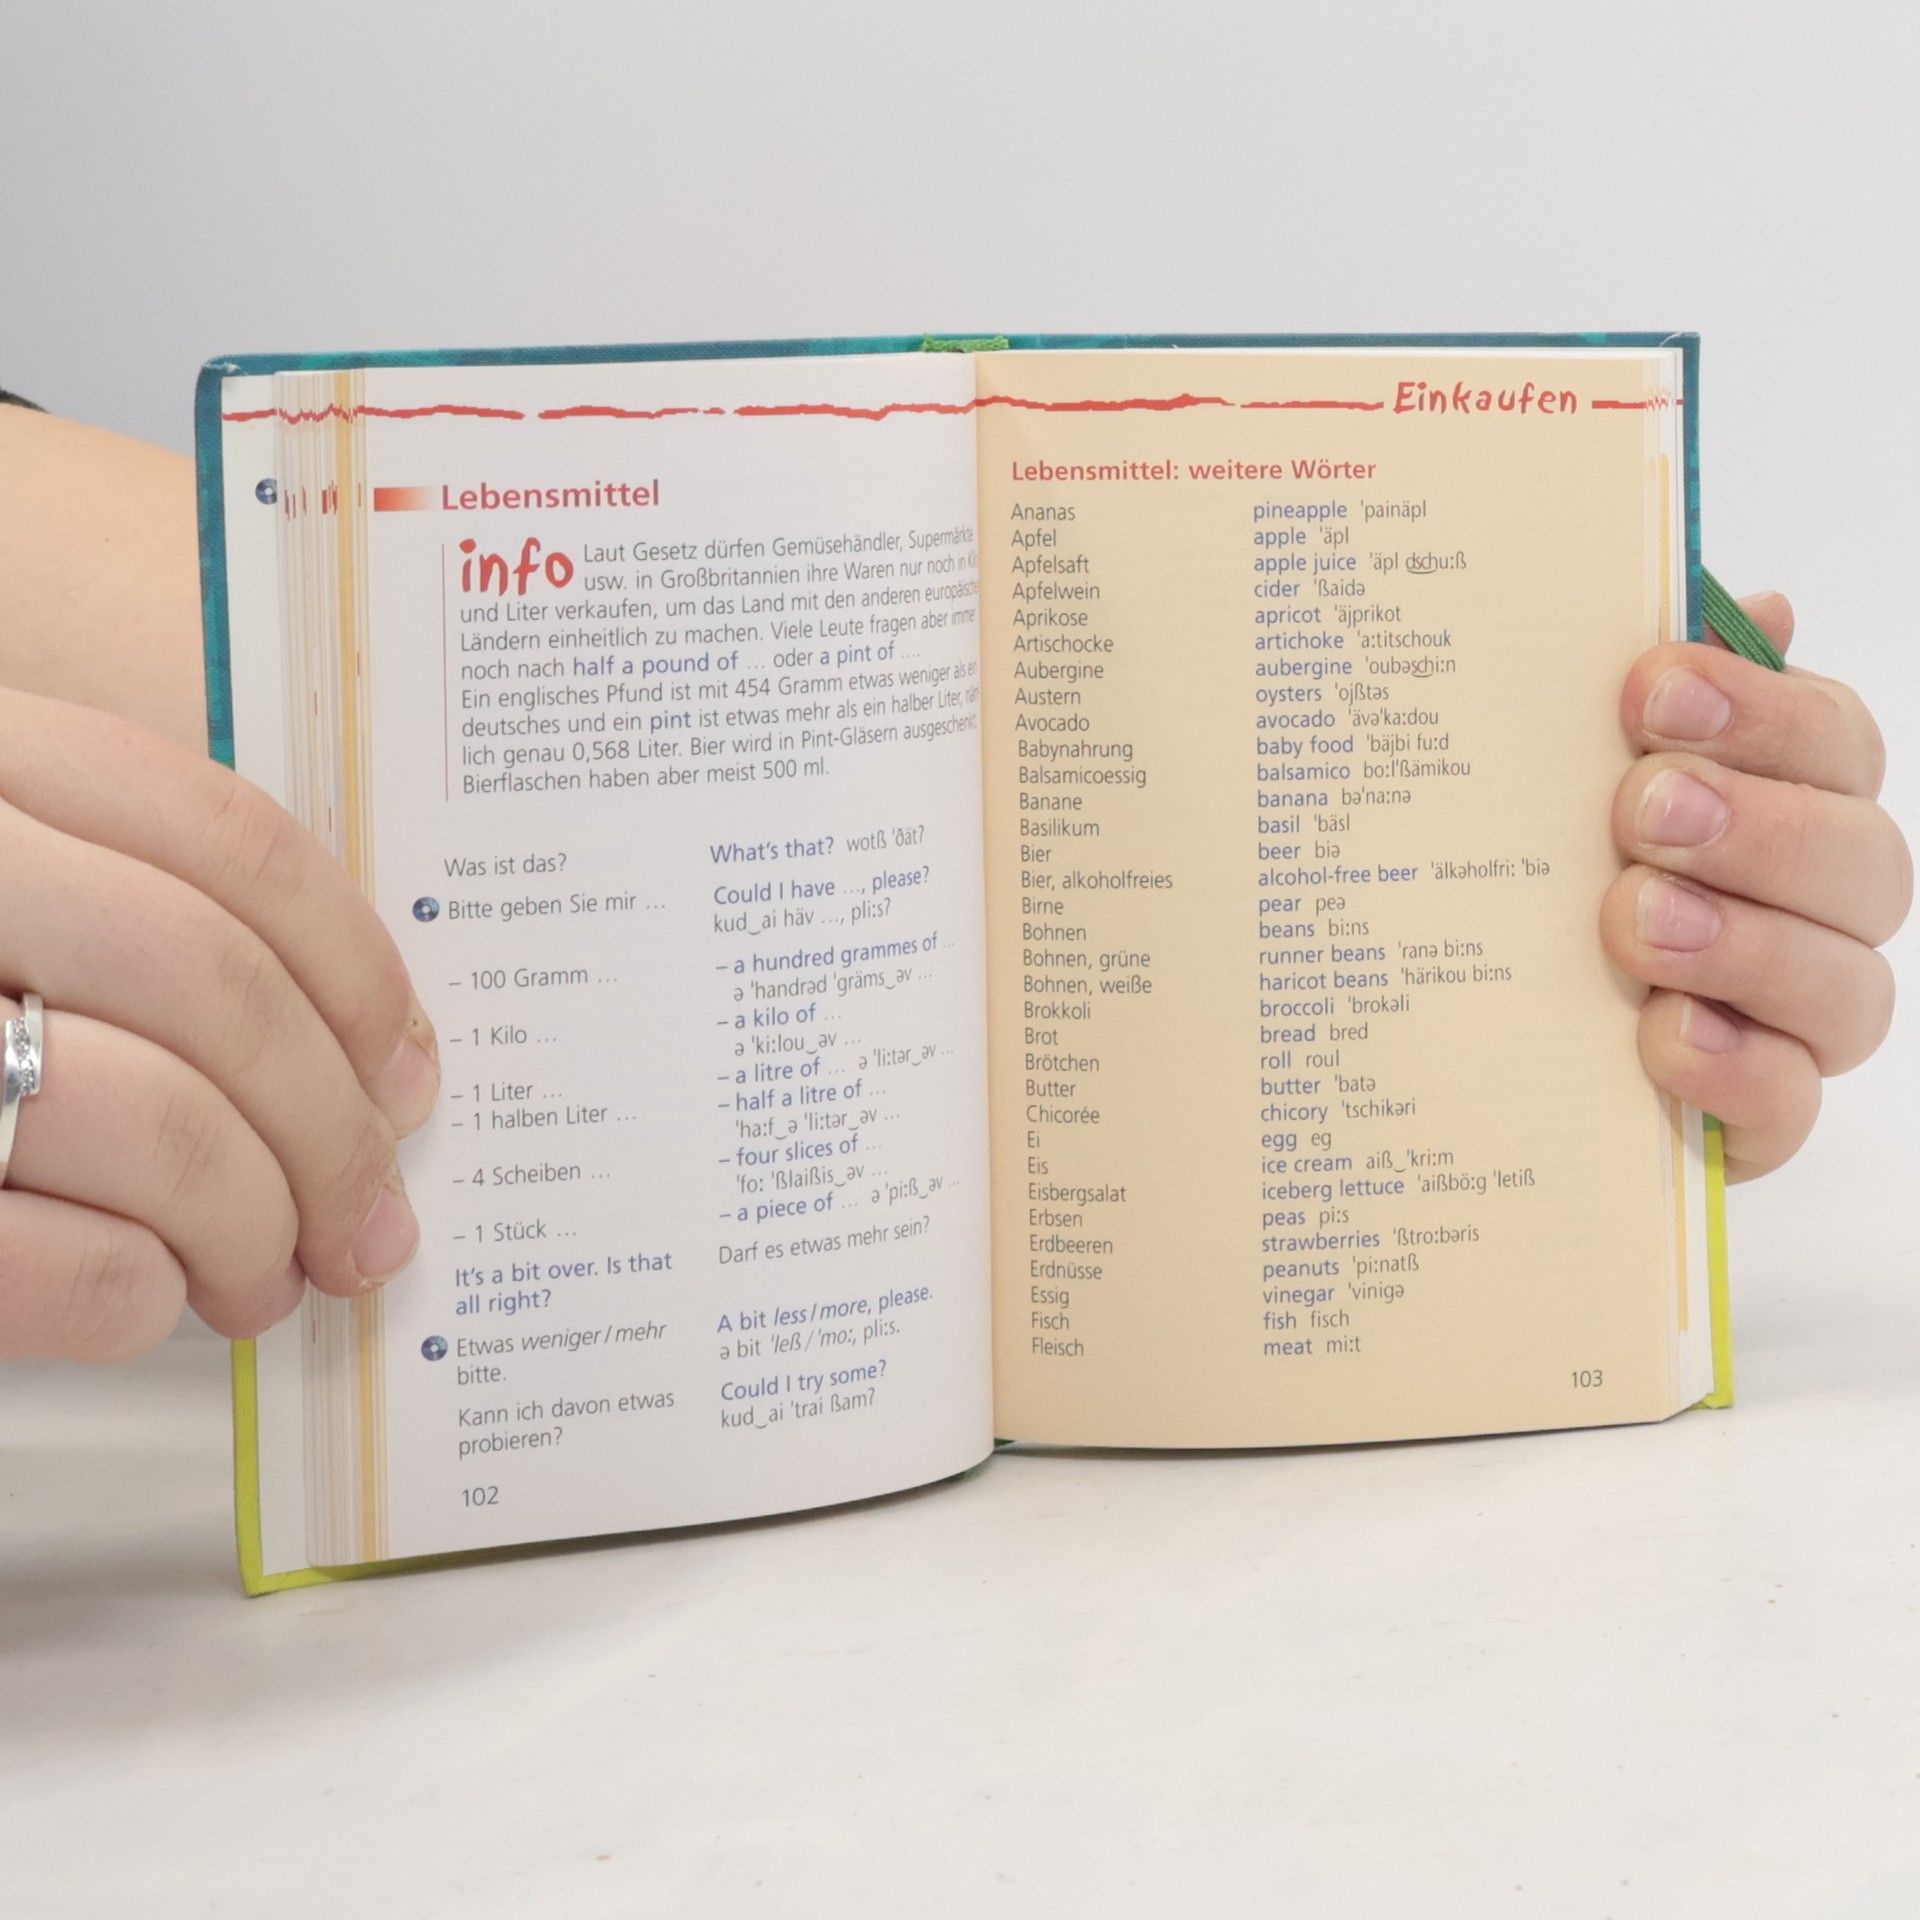 Lebensmittel
info Laut Gesetz dürfen Gemüsehändler, Supermärkte
usw. in Großbritannien ihre Waren nur noch in
und Liter verkaufen, um das Land mit den anderen
Ländern einheitlich zu machen. Viele Leute fragen aber
noch nach half a pound of ... oder a pint of ....
Ein englisches Pfund ist mit 454 Gramm etwas weniger als
deutsches und ein pint ist etwas mehr als ein halber Liter,
lich genau 0,568 Liter. Bier wird in Pint-Gläsern ausgeschenkt,
Bierflaschen haben aber meist 500 ml.
Was ist das? What's that? wotß 'ðät?
Bitte geben Sie mir ... Could I have ..., please?
kud‿ai häv ..., pli:s?
– 100 Gramm ... – a hundred grammes of ...
ə 'handrəd 'gräms‿əv ...
– 1 Kilo ... – a kilo of ...
ə 'ki:lou‿əv ...
– 1 Liter ... – a litre of ... ə 'li:tər‿əv ...
– 1 halben Liter ... – half a litre of ...
'ha:f‿ə 'li:tər‿əv ...
– 4 Scheiben ... – four slices of ...
'fo: 'ßlaißis‿əv ...
– 1 Stück ... – a piece of ... ə 'pi:ß‿əv ...
It's a bit over. Is that Darf es etwas mehr sein?
all right?
Etwas weniger/mehr A bit less/more, please.
bitte. ə bit 'leß/'mo:, pli:s.
Kann ich davon etwas Could I try some?
probieren? kud‿ai 'trai ßam?
102
Einkaufen
Lebensmittel: weitere Wörter
Ananas pineapple 'painäpl
Apfel apple 'äpl
Apfelsaft apple juice 'äpl dschu:ß
Apfelwein cider 'ßaidə
Aprikose apricot 'äjprikot
Artischocke artichoke 'a:titschouk
Aubergine aubergine 'oubəschi:n
Austern oysters 'ojßtəs
Avocado avocado 'ävə'ka:dou
Babynahrung baby food 'bäjbi fu:d
Balsamicoessig balsamico bo:l'ßämikou
Banane banana bə'na:nə
Basilikum basil 'bäsl
Bier beer biə
Bier, alkoholfreies alcohol-free beer 'älkəholfri: 'biə
Birne pear peə
Bohnen beans bi:ns
Bohnen, grüne runner beans 'ranə bi:ns
Bohnen, weiße haricot beans 'härikou bi:ns
Brokkoli broccoli 'brokəli
Brot bread bred
Brötchen roll roul
Butter butter 'batə
Chicorée chicory 'tschikəri
Ei egg eg
Eis ice cream aiß‿'kri:m
Eisbergsalat iceberg lettuce 'aißbö:g 'letiß
Erbsen peas pi:s
Erdbeeren strawberries 'ßtro:bəris
Erdnüsse peanuts 'pi:natß
Essig vinegar 'vinigə
Fisch fish fisch
Fleisch meat mi:t
103